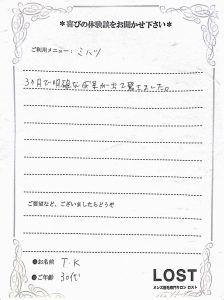 ＊喜びの体験談をお聞かせ下さい＊
ご利用メニュー：ミハツ
3ヶ月で明確な効果が出て驚きました。
ご要望など、ございましたらどうぞ
●お名前 T.K
●ご年齢 30代
LOST
メンズ脱毛専門サロン ロスト